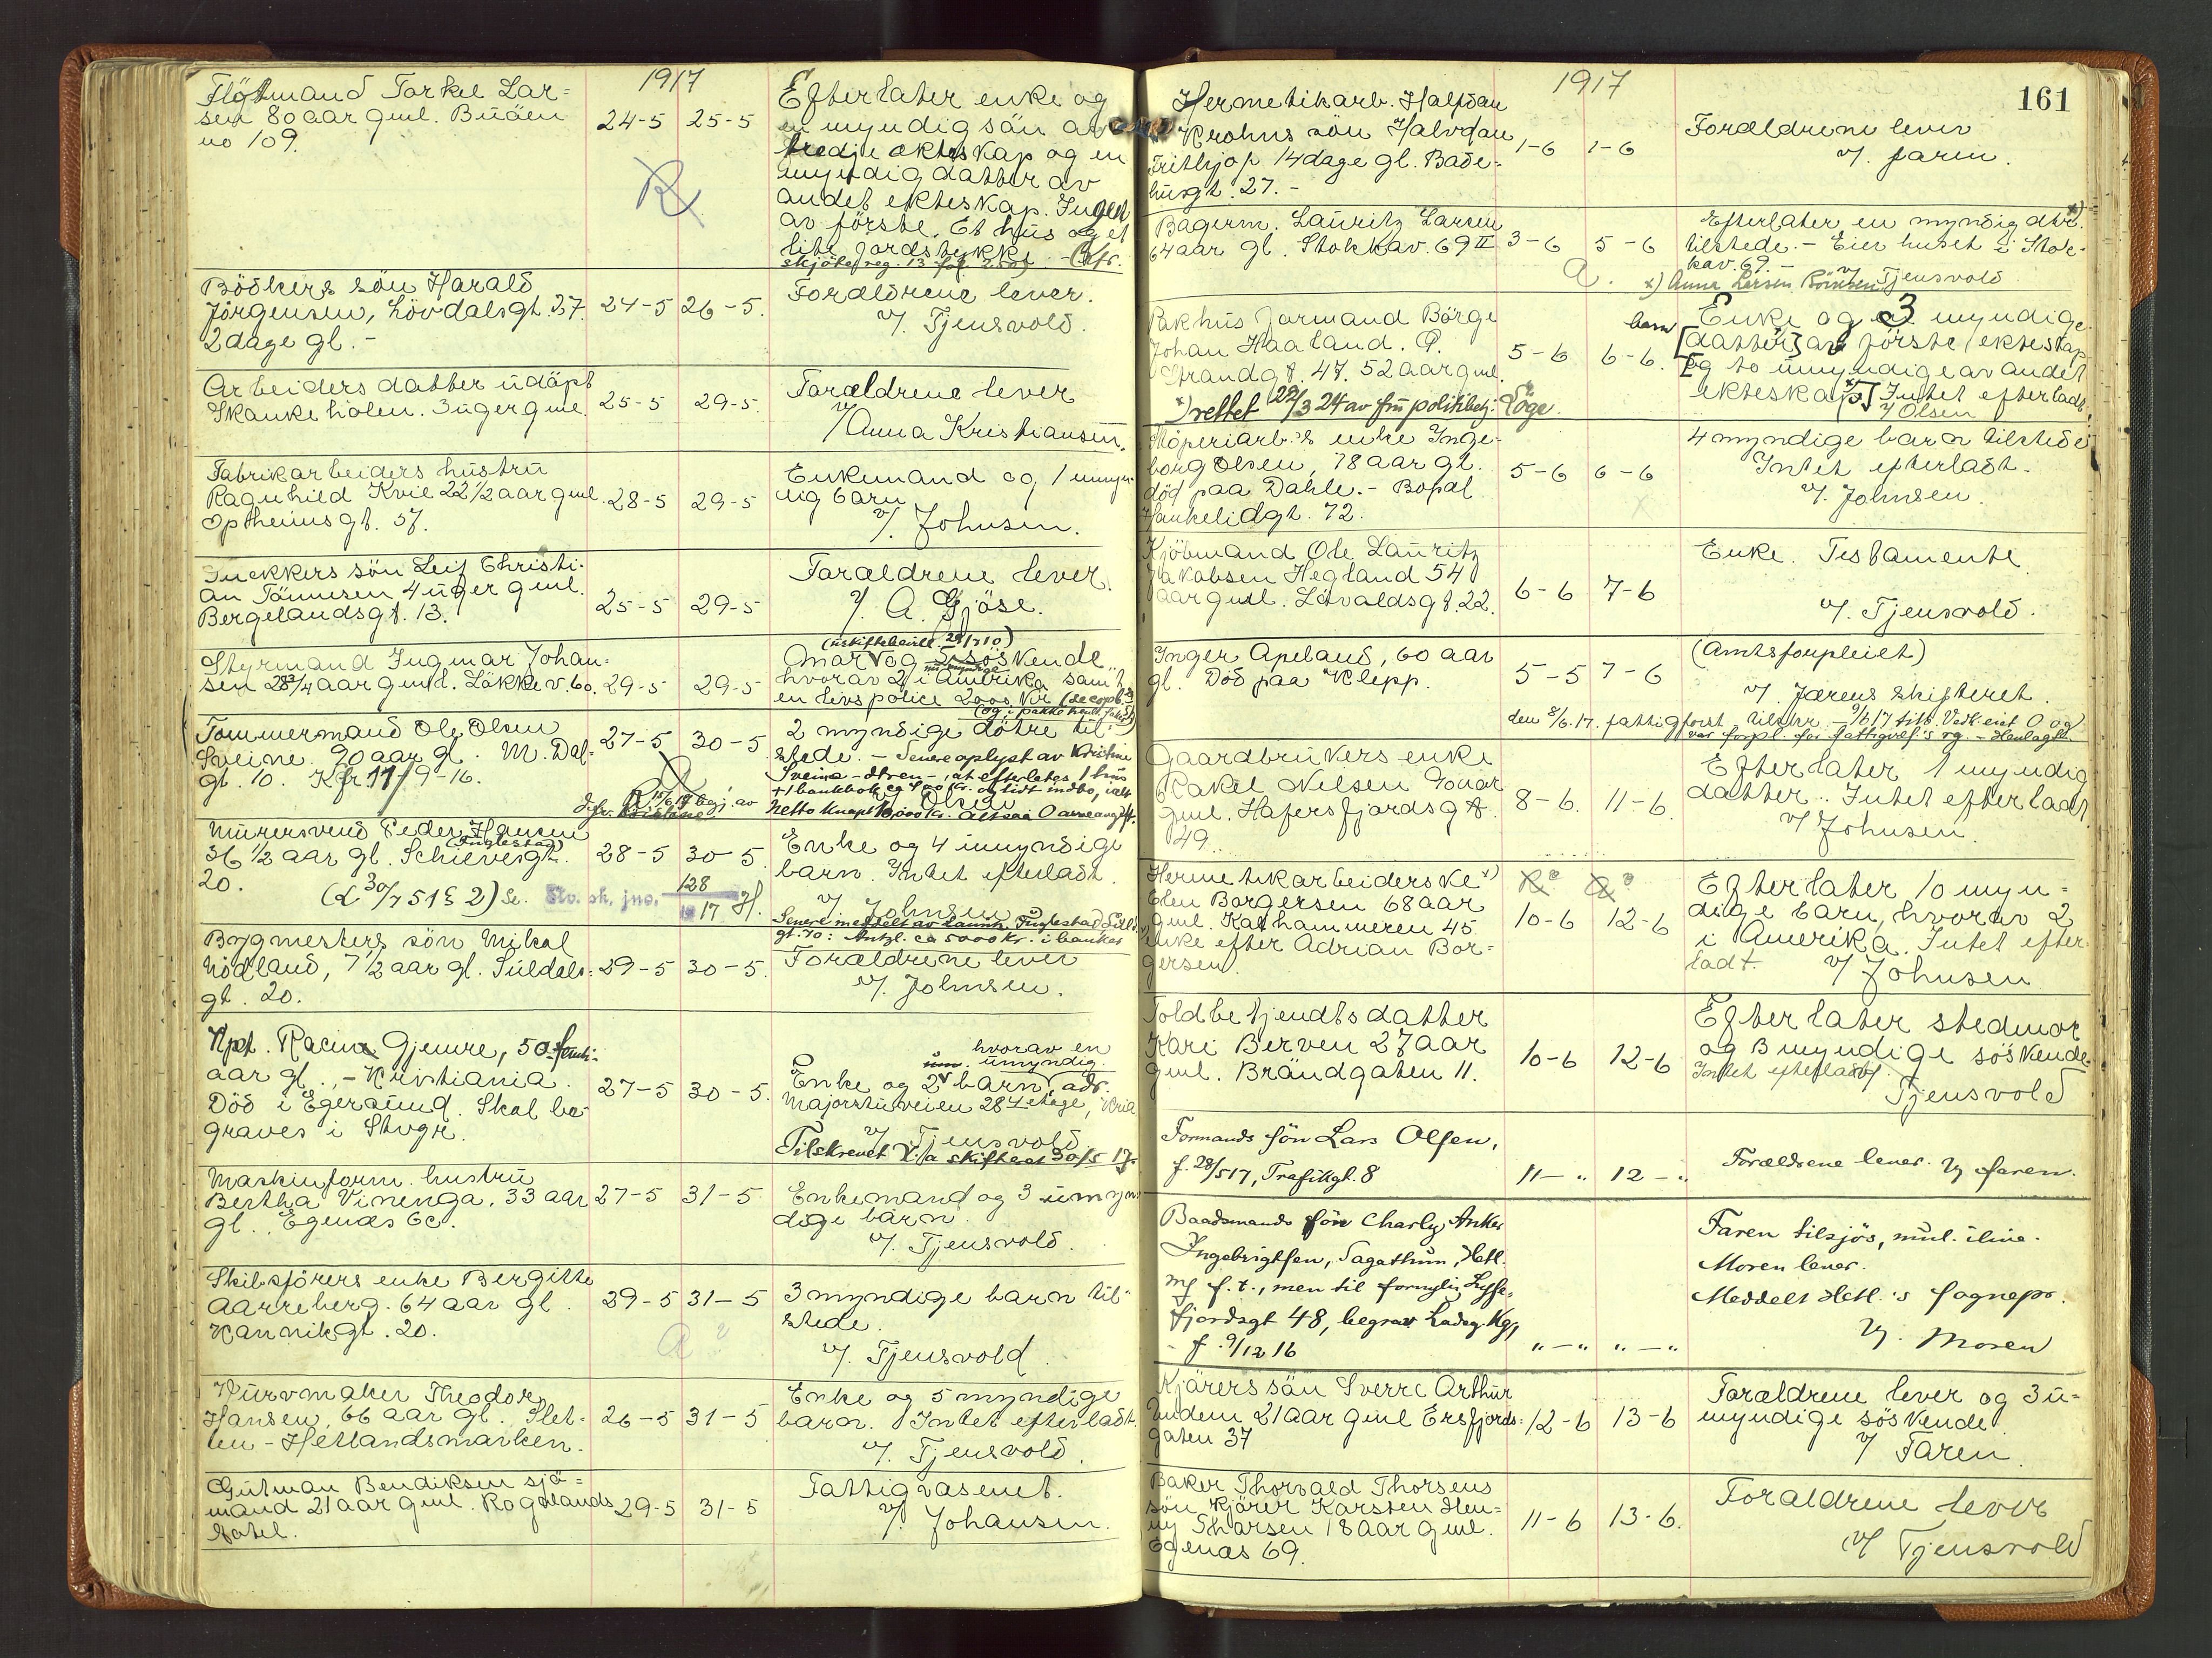 1917
Flötmand Torkel Lar=
sen 80 aar gml. Buöen
no 109.
24-5 25-5
Efterlater enke og
en myndig sön av
tredje ekteskap og en
myndig datter av
andet ekteskap. Ingen
av förste. Et hus og et
lite jordstykke. Kfr.
skjötereg. 13 fol.
Bödkers sön Harald
Jörgensen, Lövdalsgt. 37.
2 dage gl. -
24-5 26-5.
Foreldrene lever.
v/. Tjensvold.
Arbeiders datter udöpt
Skankeholen. 3 uger gml.
25-5 29-5.
Forældrene lever
v/ Anna Kristiansen.
Fabrikarbeiders hustru
Ragnhild Kvie 22 1/2 aar gml.
Optheimsgt. 57.
28-5 29-5
Enkemand og 1 umyn-
dig barn
v/. Johnsen.
Snekkers sön Leif Christi-
an Tönnesen 4 uger gml.
Bergelandsgt. 13.
25-5 29-5
Forældrene lever.
v/. A. Gjöse.
Styrmand Ingmar Johan=
sen 28 3/4 aar gml. Lökkev. 60.
29-5 29-5
(uskiftebevill. 29/7 10)
Mor og 5 söskende
hvorav 2 i Amerika samt
en livspolice 2000 Kr.
Tömmermand Ole Olsen
Sveine. 90 aar gl. M. Dal-
gt. 10. Kfr 11/9-16.
27-5 30-5
2 myndige dötre til-
stede. - Senere oplyst av Kristine
Sveine - dtren -, at efterlates 1 hus
+ 1 bankbok ca 400 kr. og lidt indbo, ialt
netto knapt 10,000 kr. Altsaa 0 arveavgift.
Olsen
Murersvend Peder Hansen
(Fuglestad)
36 1/2 aar gl. Schievesgt.
20. (L 30/7 51 § 2) Se. Stv. sk. jno. 128
1917 H.
28-5 30-5
Enke og 4 umyndige
barn. Intet efterladt.
v/ Johnsen
gt. 70: Antgl. ca 5000 kr. i banker
Bygmesters sön Mikal
Nödland, 7 1/2 aar gl. Suldals-
gt. 20.
29-5 30-5.
Forældrene lever
v/. Johnsen.
Kpt. Racin Gjemre, 50-femti-
aar gl., - Kristiania.
Död i Egersund. Skal be-
graves i Stvgr.
27-5 30-5.
hvorav en
umyndig
Enke og 2 barn adr.
Majorstuveien 28 4 etage, Kria
v/ Tjensvold
Tilskrevet Kr.a skifteret 30/5 17.
Maskinform. hustru
Bertha Vinenga. 33 aar
gl. Egenæs 6c.
27-5 31-5
Enkemand og 3 umyn-
dige barn.
v/. Tjensvold.
Skibsförers enke Bergitte
Aarreberg. 64 aar gl.
Kannikgt. 20.
29-5 31-5
3 myndige barn til-
stede.
v/. Tjensvold.
Kurvmaker Theodor
Hansen, 66 aar gl. Slet-
ten - Hetlandsmarken.
26-5 31-5
Enke og 5 myndige
barn. Intet efterladt.
v/. Tjensvold.
Gutman Bendiksen sjö=
mand 21 aar gml. Rogalands
hotel.
29-5 31-5
Fattigvæsenet.
v/. Johansen.
161
1917
Hermetikarb. Halfdan
Krohns sön Halvdan
Fritjof 14 dage gl. Bade-
husgt. 27. -
1-6 1-6
Forældrene lever
v/. faren.
Bagerm. Lauritz Larsen
64 aar gl. Stokkav. 69 II
3-6 5-6
Efterlater en myndig dtr. x)
tilstede. - Eier huset i Stok-
kav. 69. -
v/ Tjensvold
x) Anna Larsen
Pakhusformand Börge
Johan Haaland. Ö.
Strandgt. 47. 52 aar gml.
5-6 6-6.
x) rettet 22/3 24 av frm politibetj. Töge.
barn
Enke og 3 myndige
[datter] av förste ekteskap
[og to umyndige av andet
ekteskap] x) Intet efterladt.
v/ Olsen
Meieriarb.s enke Inge-
borg Olsen, 78 aar gl.
död paa Dahle. - Bopæl
Haukelidgt. 72.
5-6 6-6
4 myndige barn tilstede
Intet efterladt.
v/. Johnsen.
Kjöbmand Ole Lauritz
Jakobsen Hegland 54
aar gml. Lövaldsgt. 22.
6-6 7-6
Enke. Testamente.
v/. Tjensvold.
Inger Apeland, 60 aar
gl. Död paa Klepp.
5-5 7-6
(Amtsforpleiet)
v/ Jærens skifteret.
Gaardbrukers enke
Rakel Nilsen 90 aar
gml. Hafersfjordsgt.
49.
8-6. 11-6.
Efterlater 1 myndig
datter. Intet efterladt.
v/ Johnsen.
Hermetikarbeiderske x)
Elen Borgersen 68 aar
gml. Kathammeren 45
enke efter Adrian Bor-
gersen.
10-6 12-6
Efterlater 10 myn=
dige barn, hvorav 2
i Amerika. Intet efter-
ladt. v/ Johnsen
Toldbetjendts datter
Kari Berven 27 aar
gml. Brändgaten 11.
10-6 12-6
Efterlater stedmor
og 3 myndige söskende.
Intet efterladt
v/ Tjensvold
Formands sön Lars Olsen,
f. 28/5 17, Trafikgt. 8
11-" 12-"
Forældrene lever. v/ faren.
Baadsmands sön Charly Anker
Ingebrigtsen, Sagathun, Hetl.
f. t., men til fornylig Lysse-
fjordsgt 48, begrav Ladeg. Kg,
- f. 9/12 16
"-" "-"
Faren tilsjös, mul. ilive.
Moren lever.
Meddelt Hetl.'s sognepr.
v/. Moren
Kjörers sön Sverre Arthur
Undem 21 aar gml Ersfjords-
gaten 37
12-6 13-6
Forældrene lever og 3 u-
myndige söskende.
v/ Faren.
Baker Thorvald Thorsens
sön Kjörer Karsten Hen-
ny Thorsen 18 aar gml.
Egenæs 69.
11-6 13-6.
Foreldrene lever
v/ Tjensvold